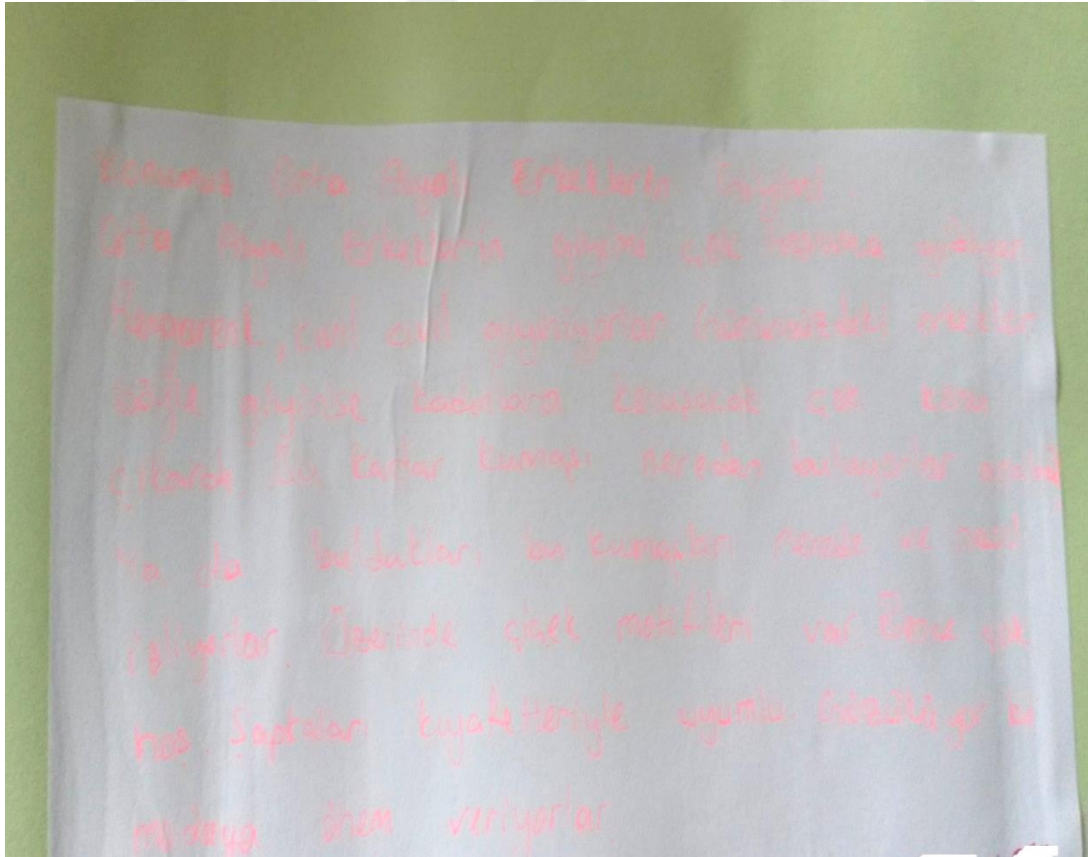 Konumuz Orta Asyalı Erkeklerin Giyimi
Orta Asyalı Erkeklerin giyimi çok hoşuma gidiyor
Rengarenk, cıvıl cıvıl giyiniyorlar Günümüzdeki erkekler
böyle giyinse kadınlara çok konu
çıkarak Bu kadar kumaşı nereden buluyorlar
Ya da buldukları bu kumaşları nerede ve nasıl
işliyorlar. Üzerinde çiçek motifleri var. Bence çok
hoş. Şapkaları kıyafetleriyle uyumlu. Gözüküyor ki
modaya önem veriyorlar